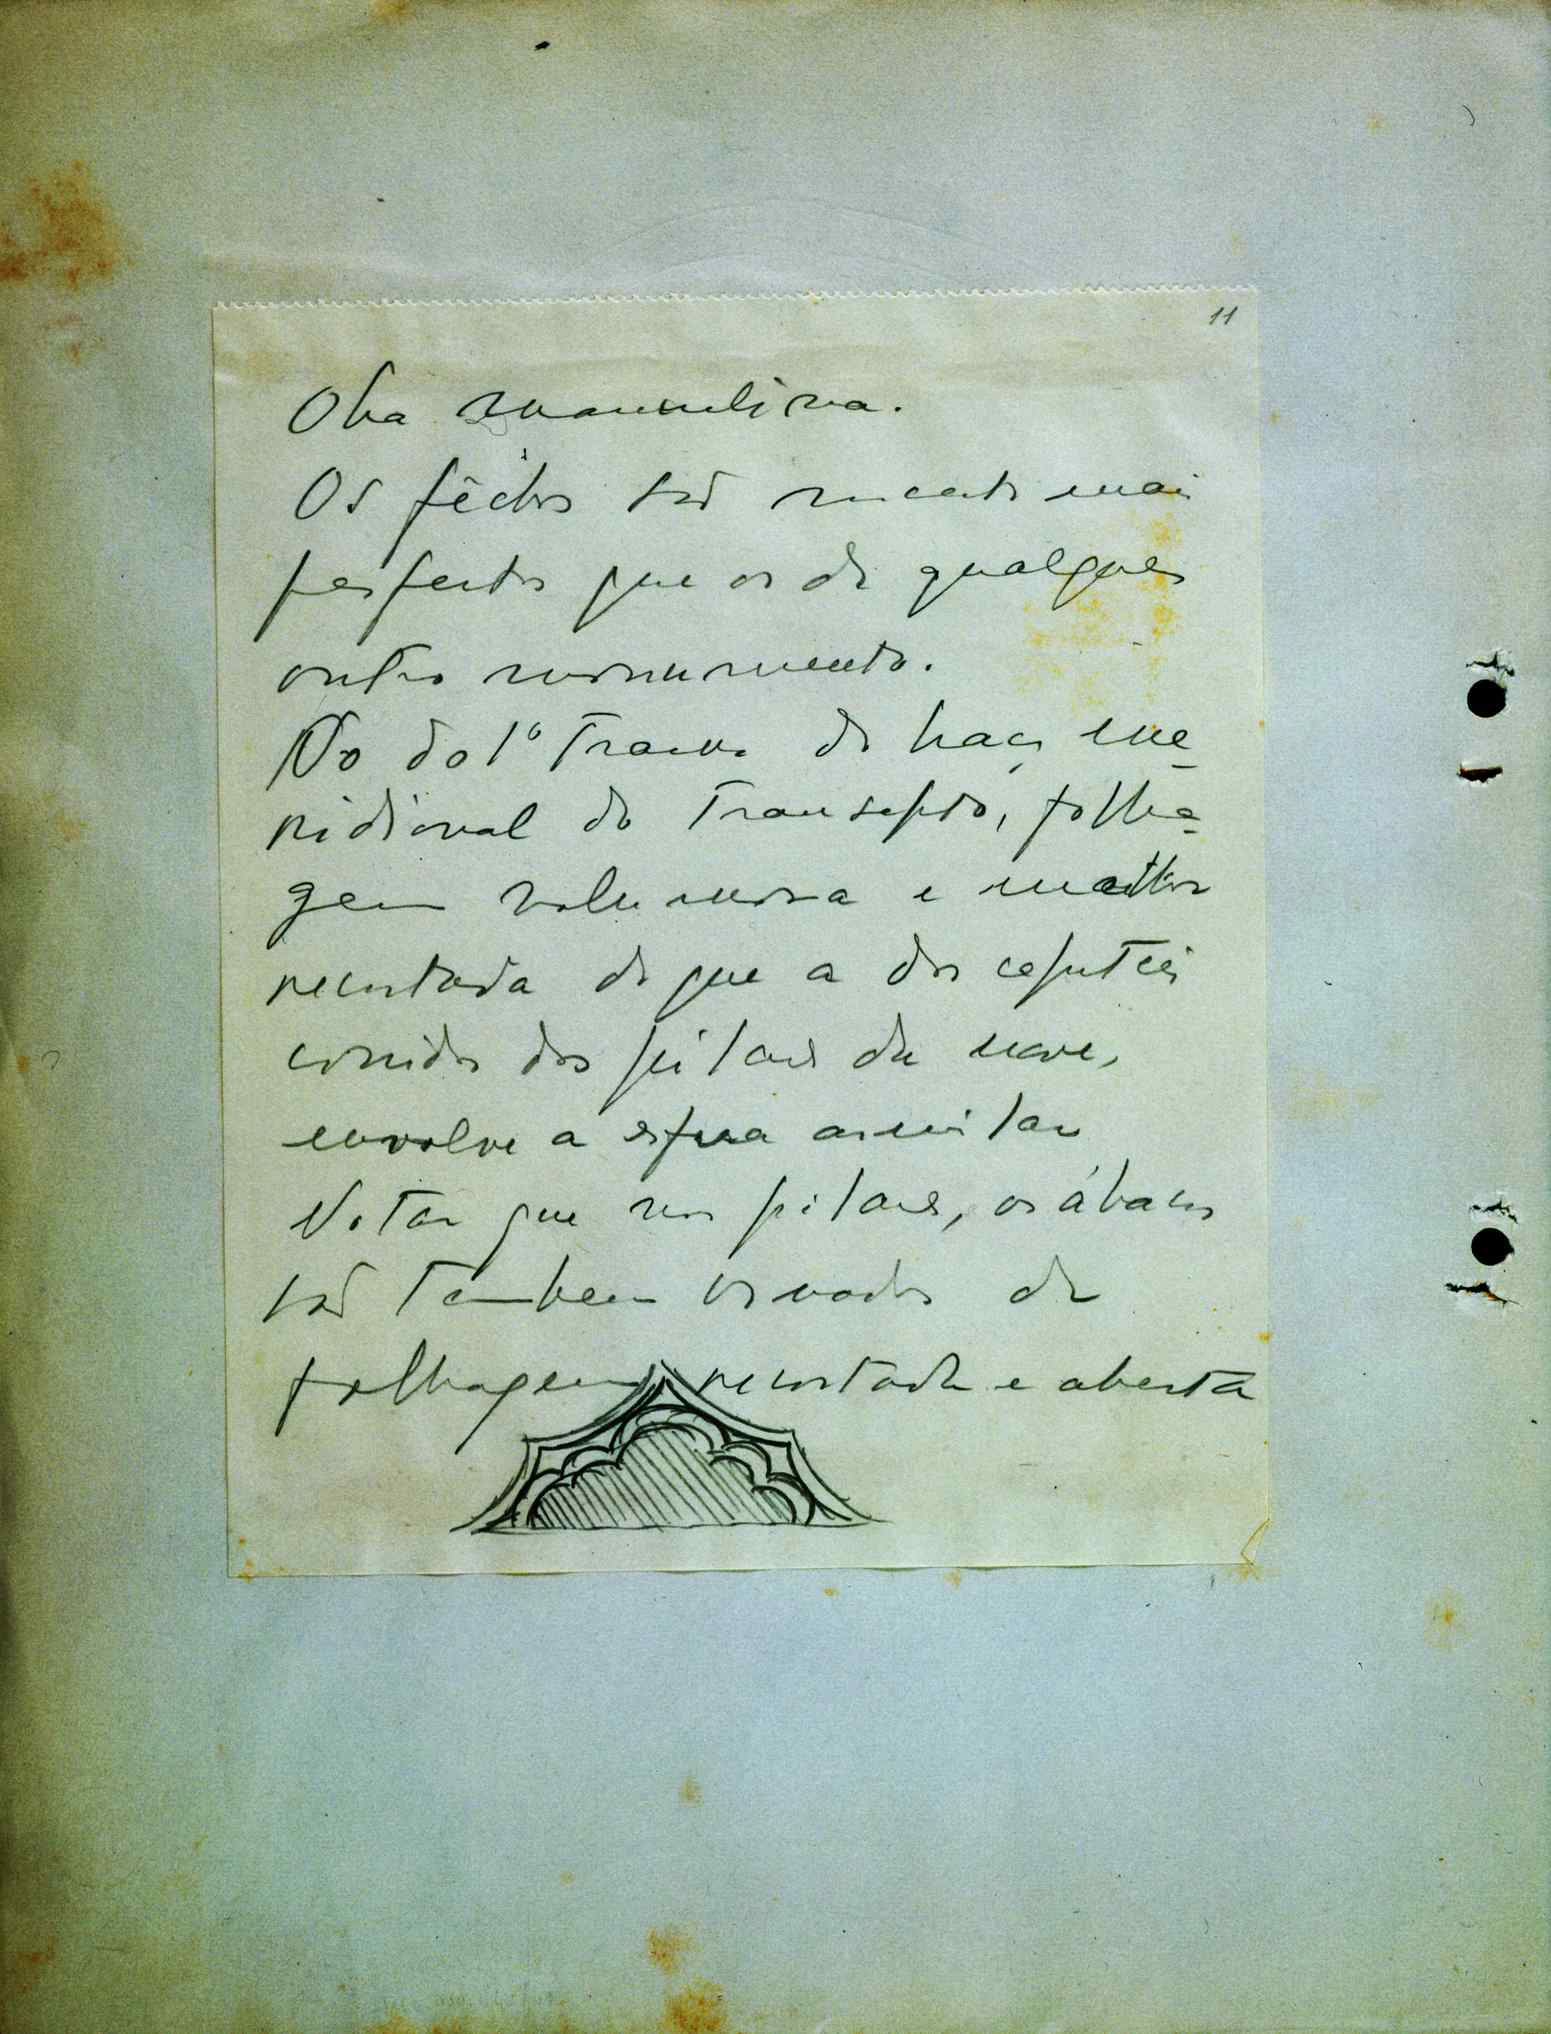 11
Obra manuelina.
Os fêchos são muito mais
perfeitos que os de qualquer
outro monumento.
No do 1º Tramo do braço me-
ridional do Transepto, folha-
gem volumosa e melhor
recortada do que a dos capiteis
corridos dos pilares da nave,
envolve a esfera armilar
Notar que nos pilares, os ábacos
são Tambem ornados de
folhagem recortada e aberta